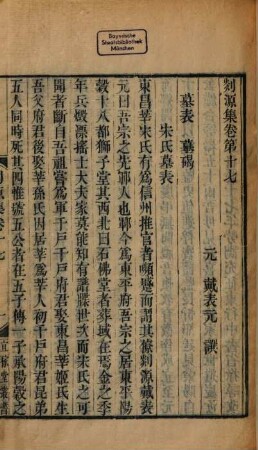 Bayerische
Staatsbibliothek
München
剡源集卷第十七
元 戴表元 撰
墓表 墓碣
朱氏墓表
東昌莘朱氏有爲信州推官者顒蹙而謂其掾剡源戴表
元曰吾宗之先鄆人也鄆今爲東平府吾宗之居東平陽
穀十八都獅子堂其西北曰石佛堂者葬域在焉金之季
年兵燬漂搖士大夫家莫能知有譜牒世次而朱氏之可
聞者斷自吾祖諱爲軍千戶千戶府君娶東昌莘姬氏生
吾父府君後娶莘孫氏因居莘爲莘人初千戶府君昆弟
五人同時死其四惟號五公者在五子傳一子承陽穀之